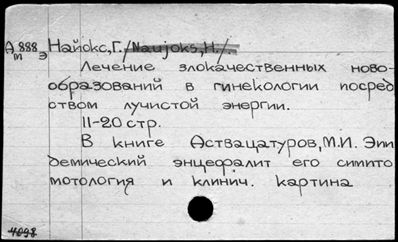 А 888 Найокс, Г. /Naujoks, H./.
т Э
Лечение злокачественных ново-
образований в гинекологии посред
ством лучистой энергии.
11-20 стр.
В книге Аствацатуров, М.И. Эпи
демический энцефалит его симпто
мотология и клинич. картина
4098